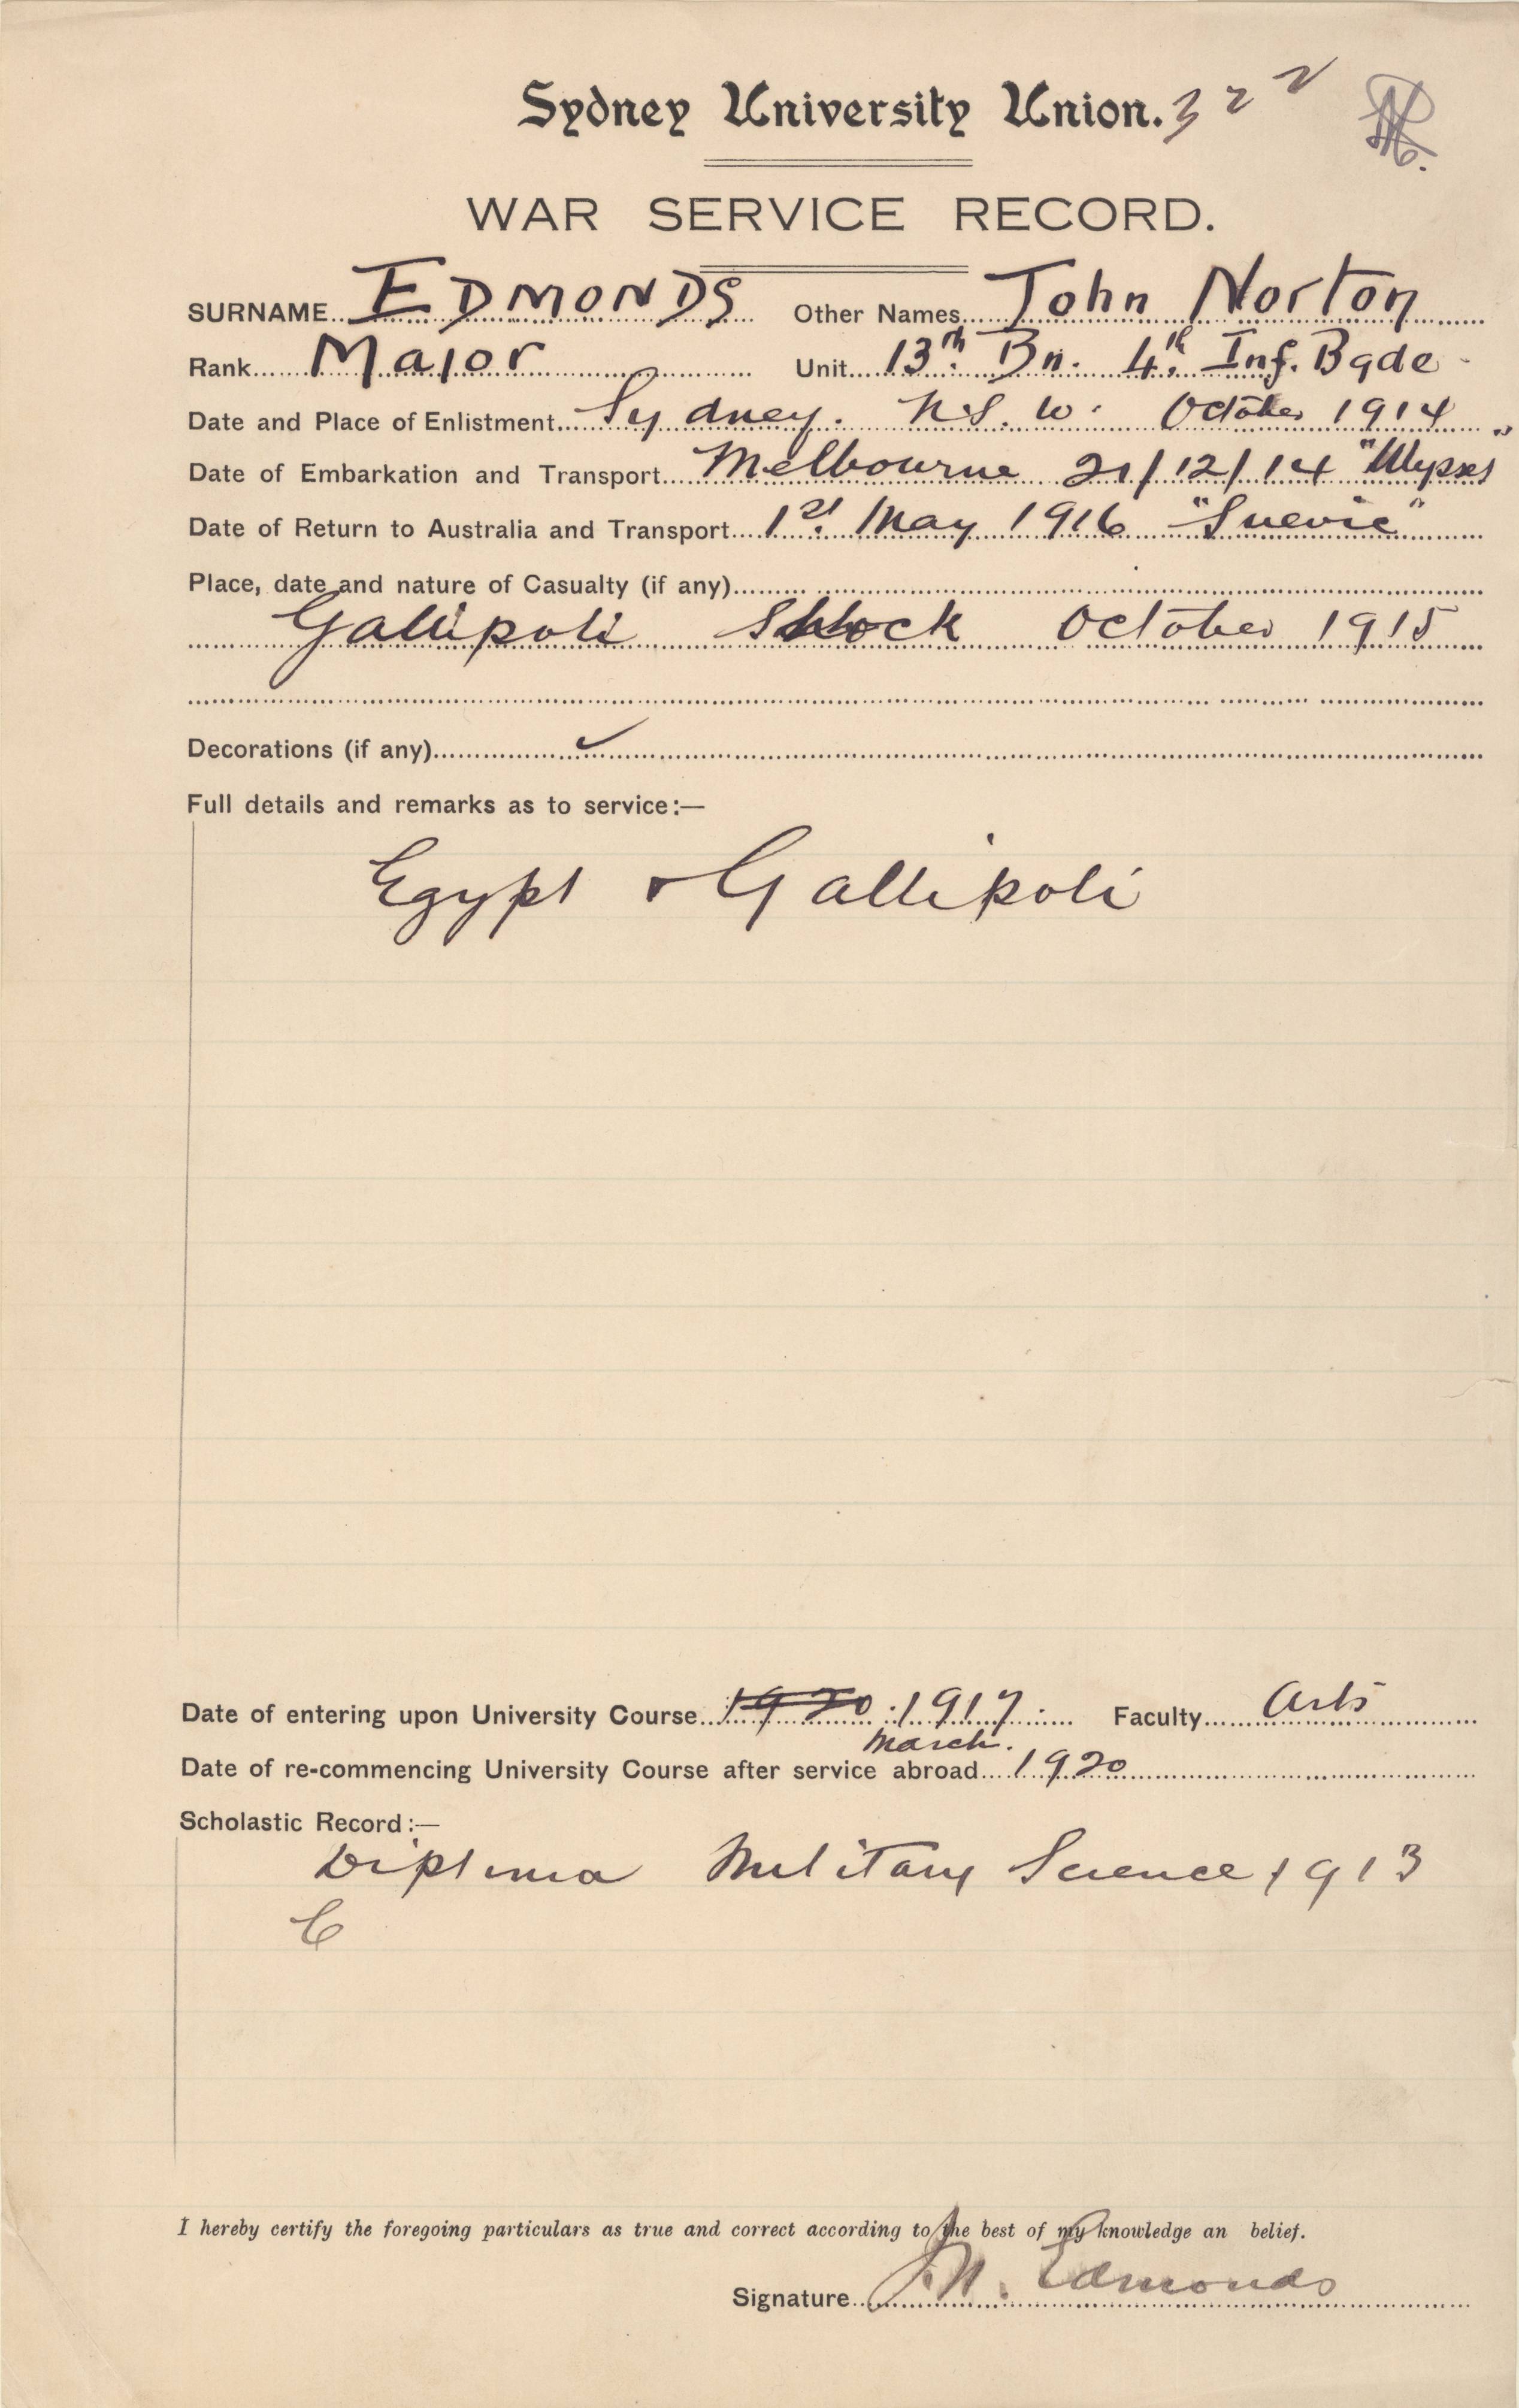 Sydney University Union. 322
WAR SERVICE RECORD.
SURNAME EDMONDS Other Names John Norton
Rank Major Unit 13th Bn. 4th Inf. Bgde
Date and Place of Enlistment Sydney. N.S.W. October 1914
Date of Embarkation and Transport Melbourne 21/12/14 "Ulysses"
Date of Return to Australia and Transport 1st May 1916 "Suevic"
Place, date and nature of Casualty (if any)
Gallipoli Shock October 1915
Decorations (if any)
Full details and remarks as to service:—
Egypt & Gallipoli
Date of entering upon University Course 1920 1917 Faculty Arts
March.
Date of re-commencing University Course after service abroad 1920
Scholastic Record:—
Diploma Military Science 1913
I hereby certify the foregoing particulars as true and correct according to the best of my knowledge an belief.
Signature J.N. Edmonds